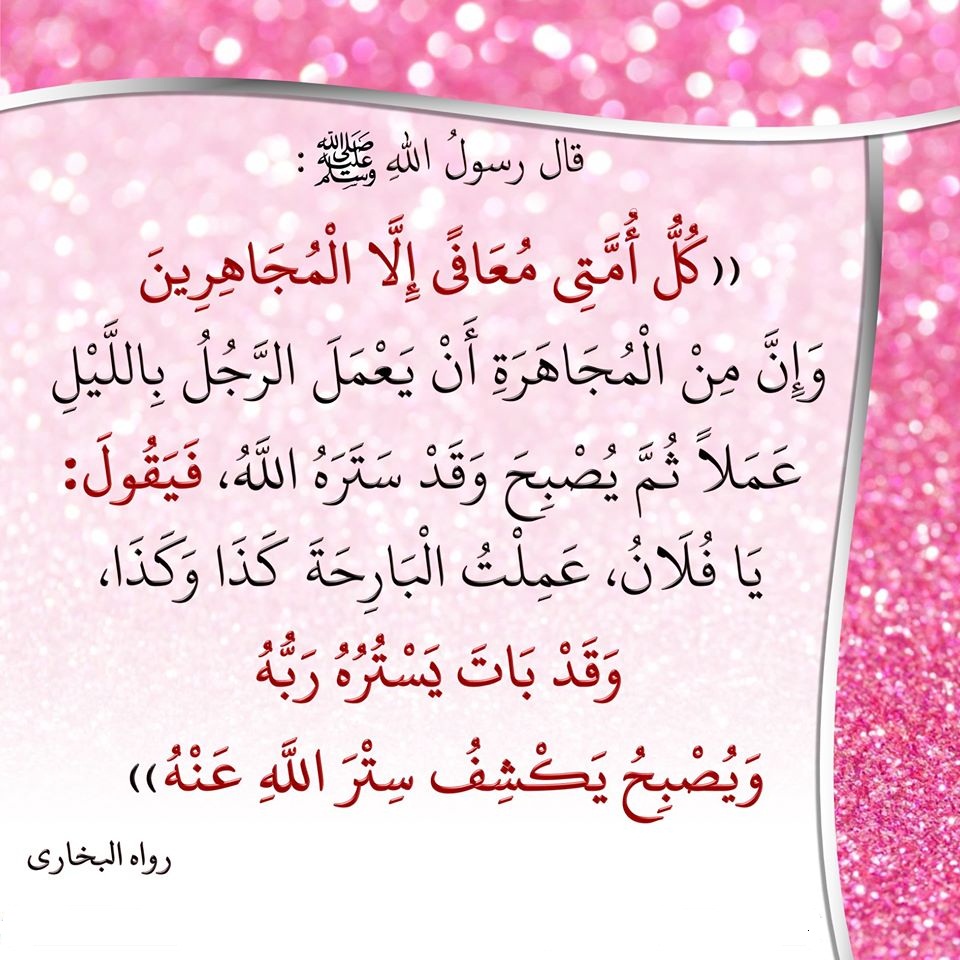 قال رسولُ اللهِ ﷺ :
((كُلُّ أُمَّتِي مُعَافًى إِلَّا الْمُجَاهِرِينَ
وَإِنَّ مِنْ الْمُجَاهَرَةِ أَنْ يَعْمَلَ الرَّجُلُ بِاللَّيْلِ
عَمَلاً ثُمَّ يُصْبِحَ وَقَدْ سَتَرَهُ اللَّهُ، فَيَقُولَ:
يَا فُلَانُ، عَمِلْتُ الْبَارِحَةَ كَذَا وَكَذَا،
وَقَدْ بَاتَ يَسْتُرُهُ رَبُّهُ
وَيُصْبِحُ يَكْشِفُ سِتْرَ اللَّهِ عَنْهُ))
رواه البخارى